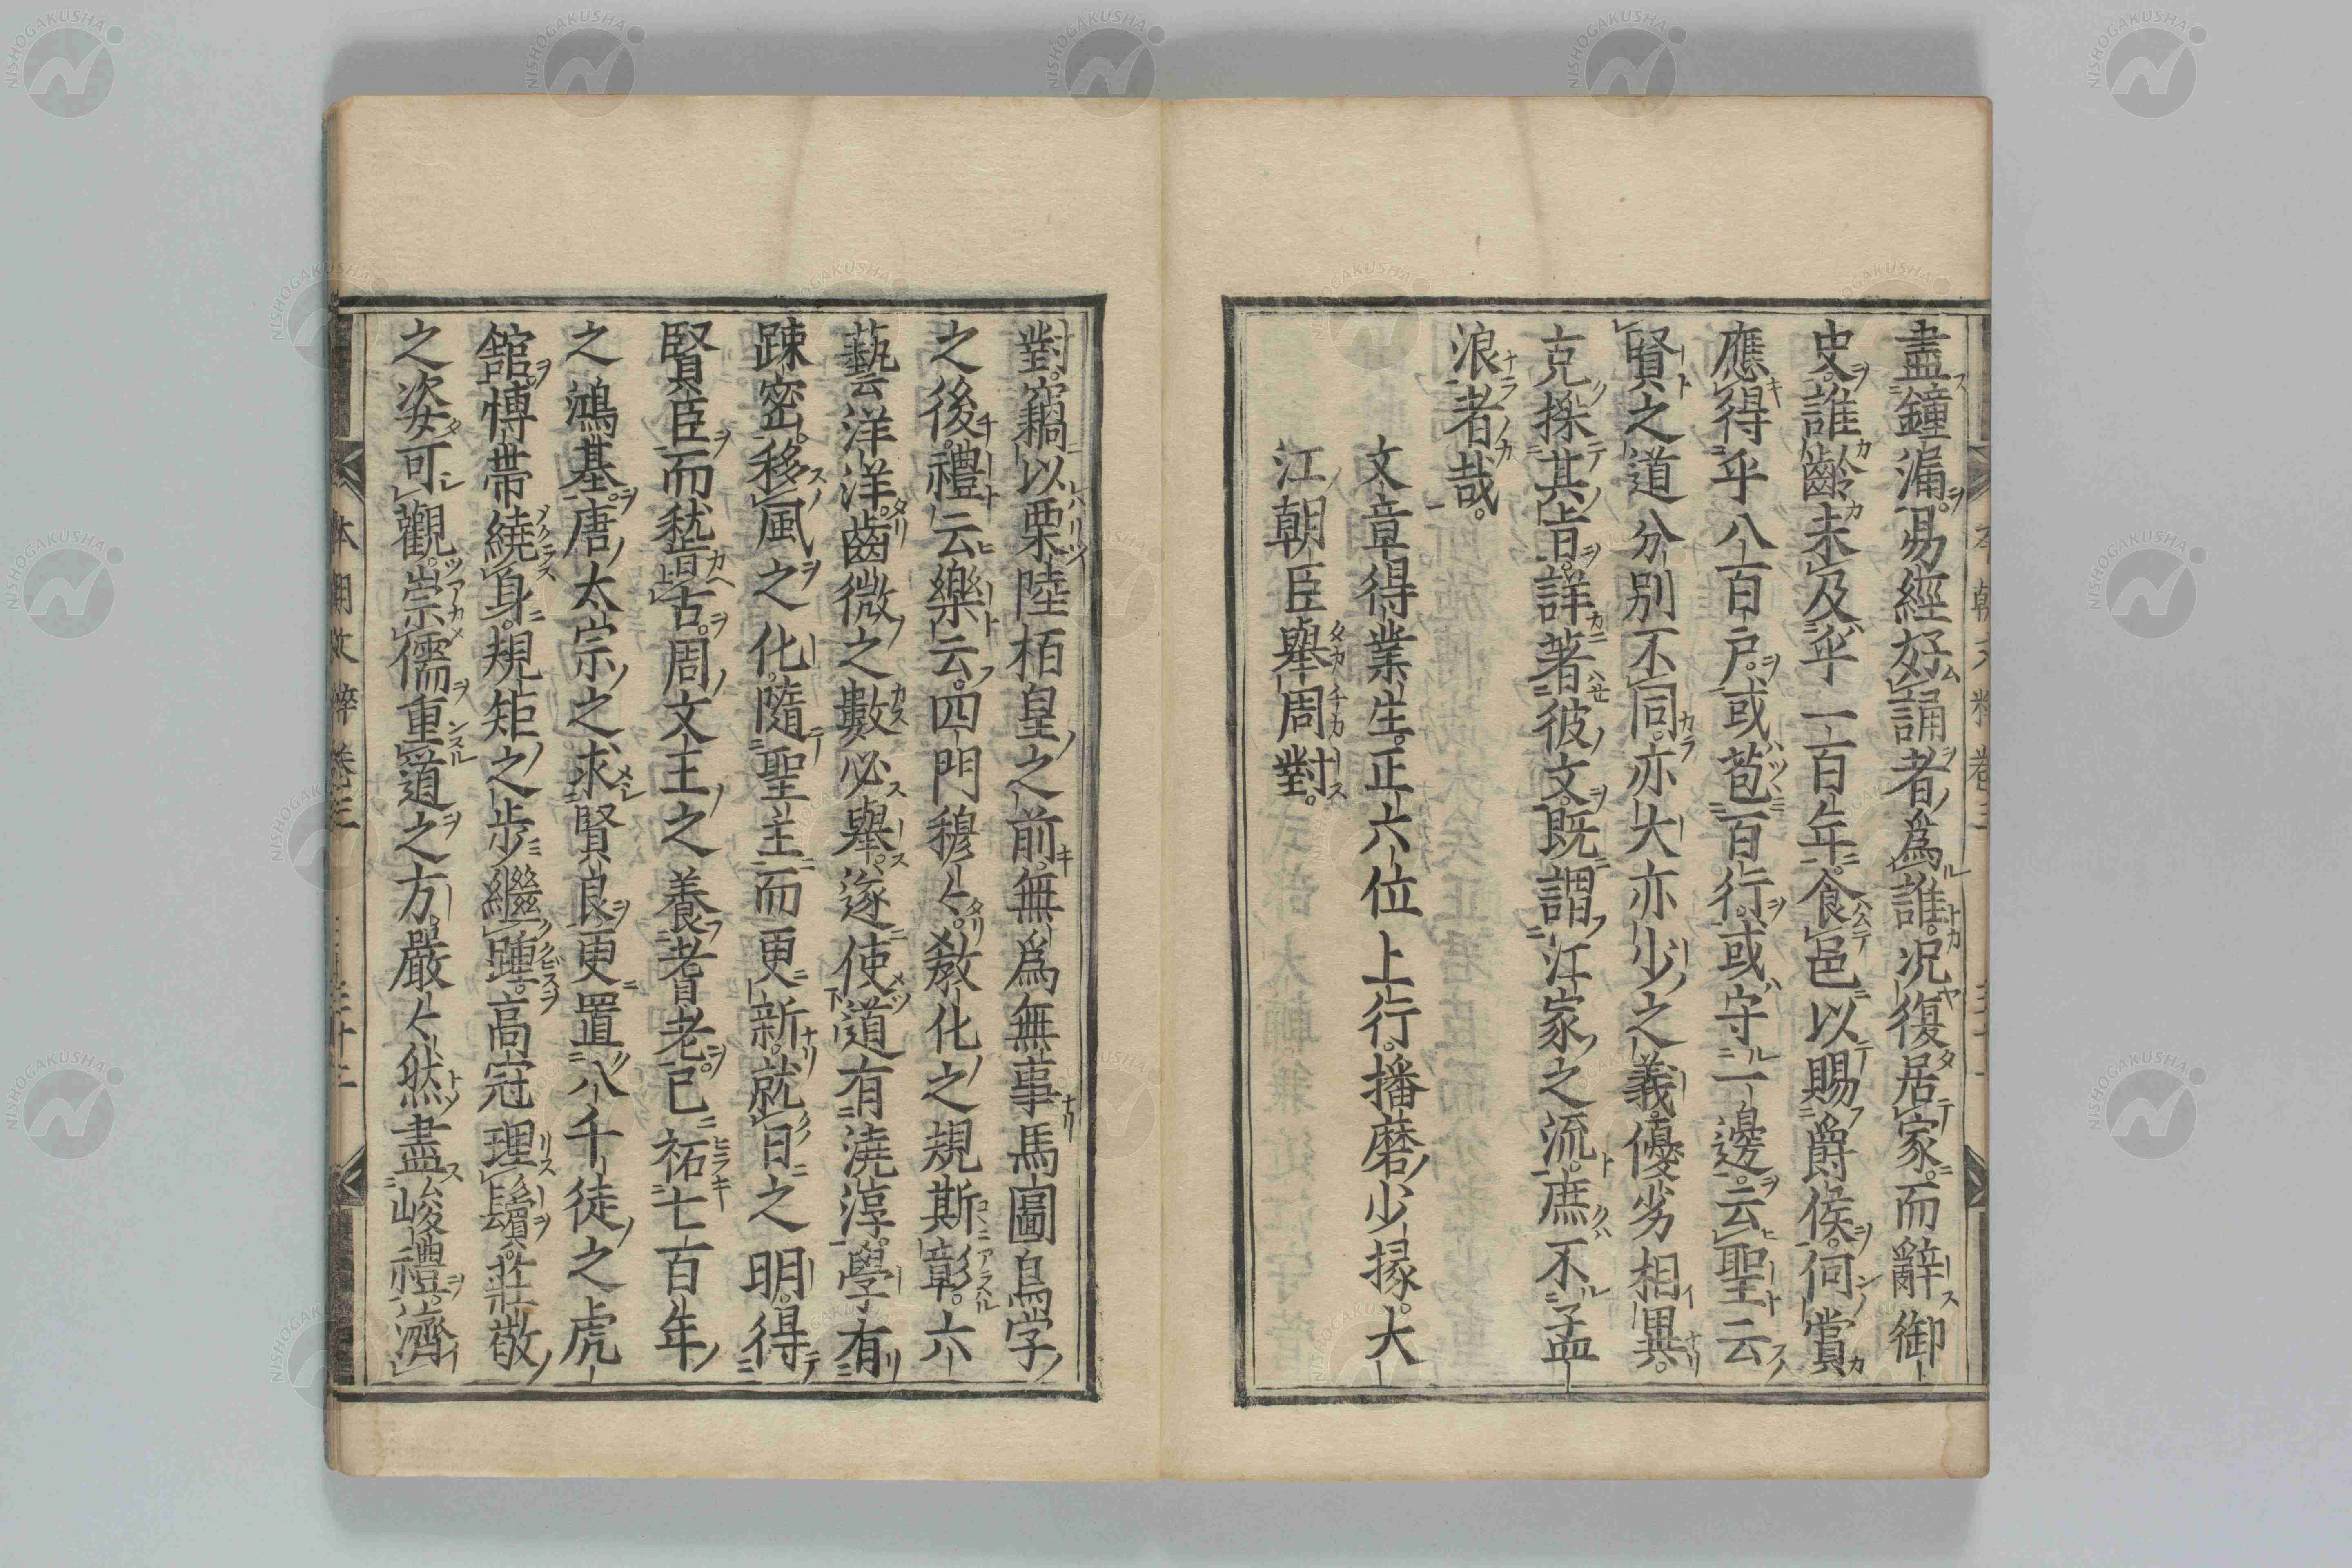 盡鐘漏。易經好誦者爲誰。況復居家。而辭御
史。誰齡未及乎一百年。食邑以賜爵侯。何賞
應得乎八百戸。或苞百行。或守一邊。云聖云
賢之道分別不同。亦大亦少之義。優劣相異。
克採其旨。詳著彼文。既謂江家之流。庶不孟
浪者哉。
文章得業生。正六位上行。播磨少掾。大
江朝臣擧周對。
對。竊以栗陸栢皇之前。無爲無事。馬圖鳥字
之後。禮云樂云。四門穆々。敎化之規斯彰。六
藝洋洋。齒微之數必擧。遂使道有澆淳。學有
踈密。移風之化。隨聖主而更新。就日之明。得
賢臣而嵆古。周文王之養耆老。已祐七百年
之鴻基。唐太宗之求賢良。更置八千徒之虎
舘。博帶繞身。規矩之步繼踵。高冠理鬢。莊敬
之姿可觀。崇儒重道之方。嚴々然盡峻禮。濟
本朝文粹卷三
本朝文粹卷三 三十二